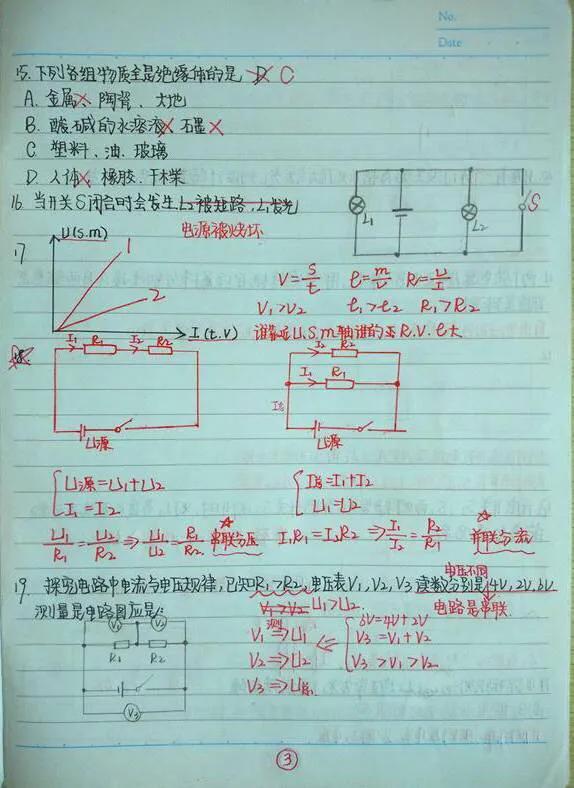 No.
Date
15. 下列各组物质全是绝缘体的是 D C
A. 金属、陶瓷、大地
B. 酸碱的水溶液、石墨
C 塑料、油、玻璃
D. 人体、橡胶、干木柴
16. 当开关S闭合时会发生L2被短路,L1发光
电源被烧坏
L1 L2 S
17
U(s.m)
1
2
I(t.v)
V=s/t ρ=m/v R=U/I
V1>V2 ρ1>ρ2 R1>R2
谁靠近U.S.m轴谁的R.V.ρ大
I1 R1 I2 R2
U源
I2 R2
I1 R1
I总
U源
U源=U1+U2
I1=I2
U1/R1=U2/R2⇒U1/U2=R1/R2 ☆串联分压
I总=I1+I2
U1=U2
I1R1=I2R2⇒I1/I2=R2/R1 ☆并联分流
电压不同
19. 探究电路中电流与电压规律,已知R1>R2,电压表V1,V2,V3读数分别是4V,2V,6V
测量是电路图应是 V1>V2 U1>U2 电路是串联
V1 V2
R1 R2
V3
测
V1⇒U1
V2⇒U2
V3⇒U源
6V=4V+2V
V3=V1+V2
V3>V1>V2
3